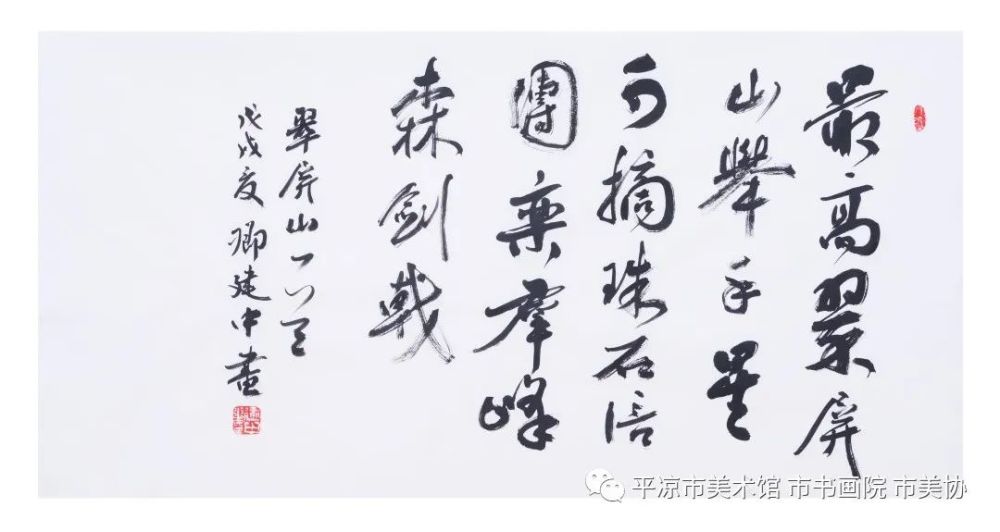 最高翠屏
山舉手星
可摘珠石
團栾群峰
森剑戟
翠屏山
戊戌夏卿建中書
平凉市美术馆 市书画院 市美协